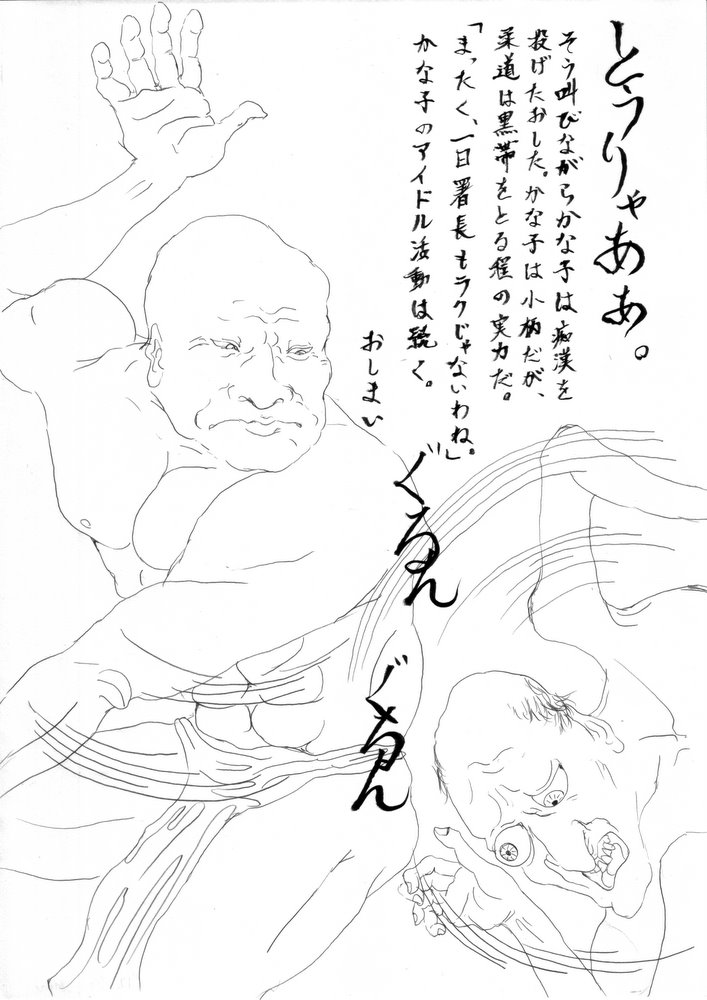 とうりゃああ。
そう叫びながらかな子は痴漢を
投げたおした。かな子は小柄だが、
柔道は黒帯をとる程の実力だ。
「まったく、一日署長もラクじゃないわね。」
かな子のアイドル活動は続く。
おしまい
ぐるん
ぐるん